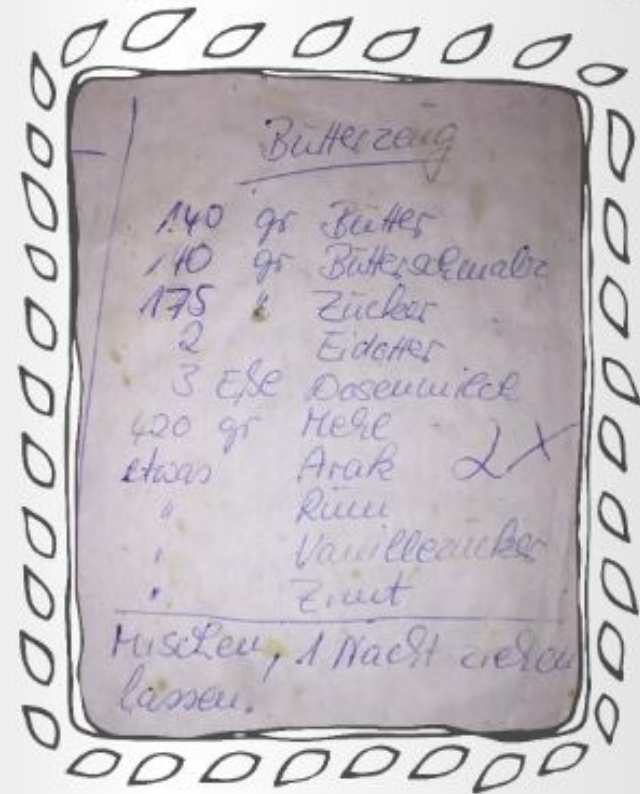 Butterzeug
140 gr Butter
140 gr Butterschmalz
175 " Zucker
2 Eidotter
3 Eßl Dosenmilch
420 gr Mehl
etwas Arak 2x
" Rum
" Vanillezucker
" Zimt
Mischen, 1 Nacht ziehen
lassen.